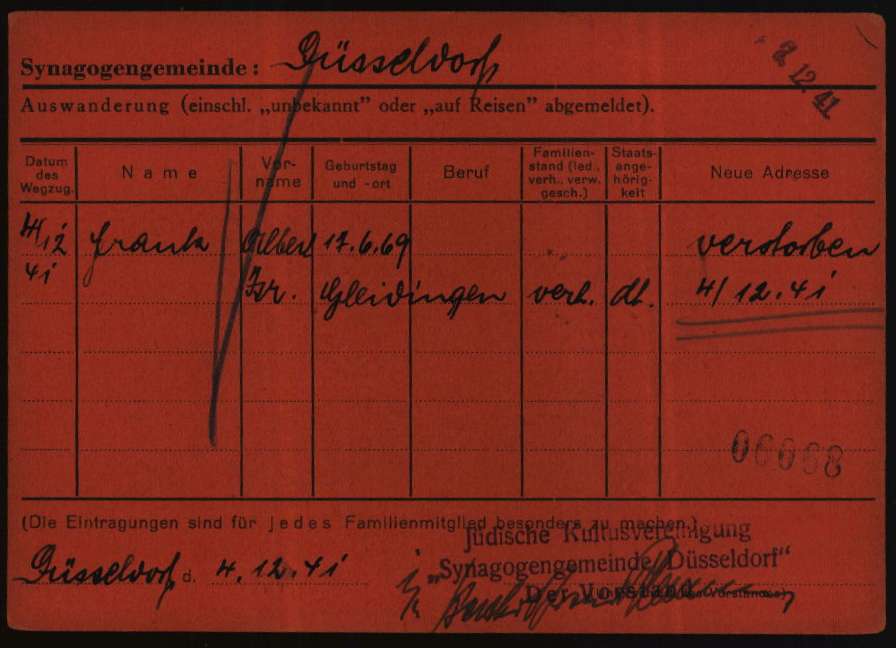 Synagogengemeinde: Düsseldorf
8. 12. 41
Auswanderung (einschl. „unbekannt” oder „auf Reisen” abgemeldet).
Datum des Wegzug. Name Vor-name Geburtstag und -ort Beruf Familien-stand (led., verh., verw. gesch.) Staats-ange-hörig-keit Neue Adresse
4/12 Frank Albert 17.6.69 verstorben
41 Isr. Gleidingen verh. dt. 4/12.41
06068
(Die Eintragungen sind für jedes Familienmitglied besonders zu machen.)
Jüdische Kultusvereinigung
Düsseldorf, d. 4.12.41 „Synagogengemeinde Düsseldorf”
Der Vorstand